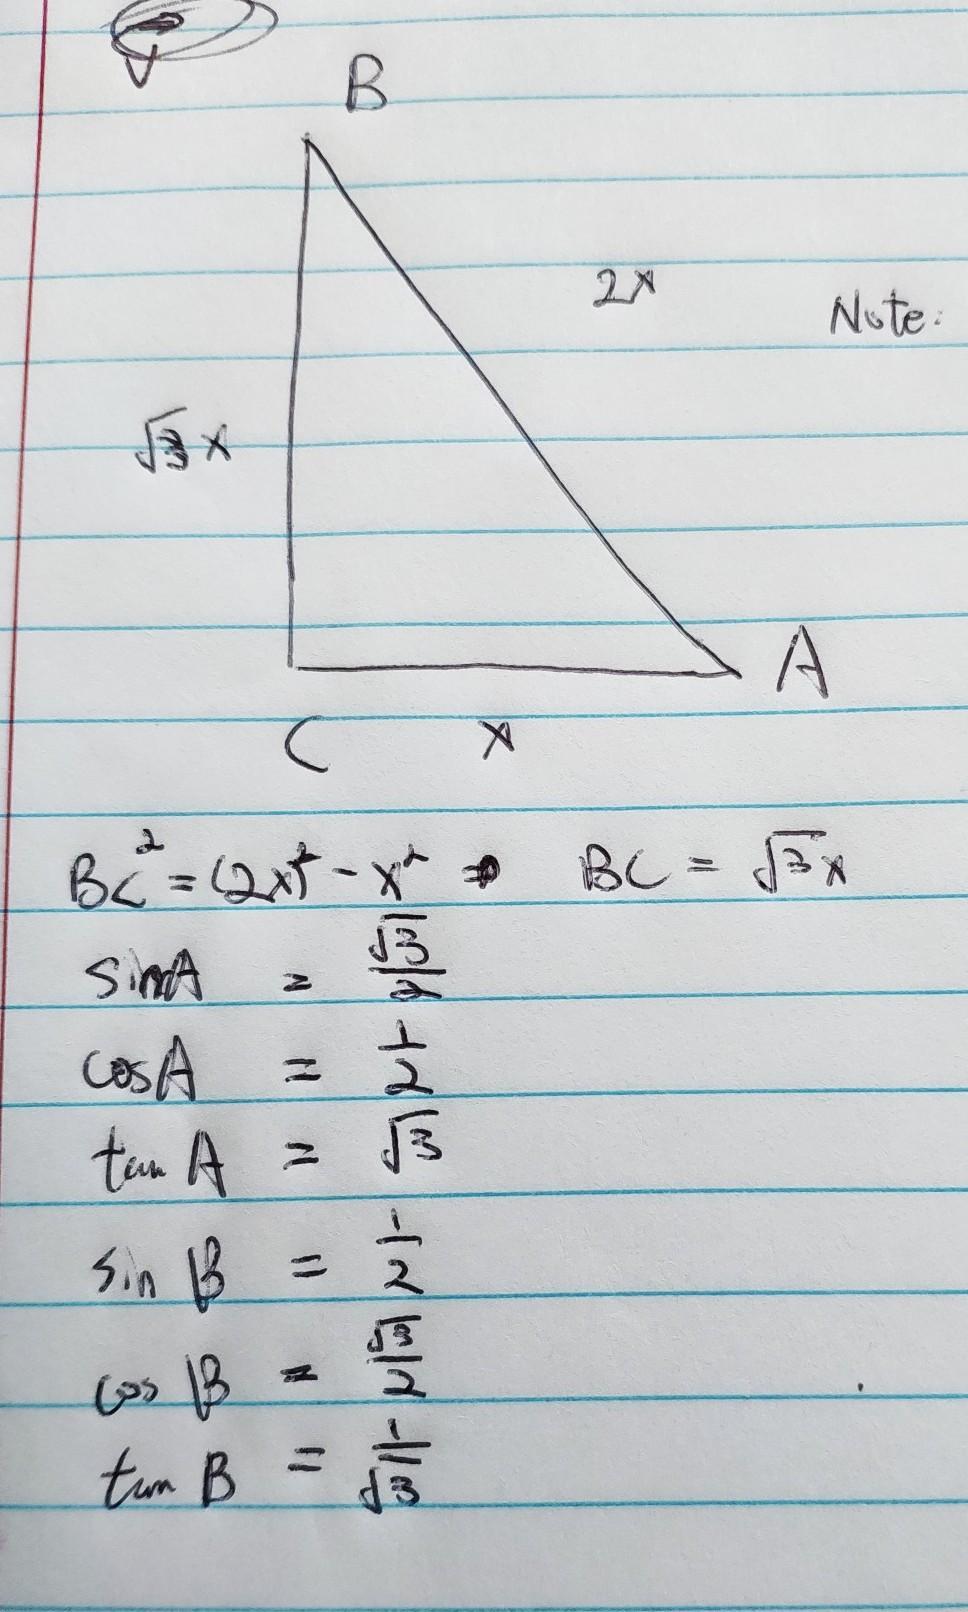 B
2x
Note:
√3 x
A
C x
BC² = (2x)² - x² ⇒ BC = √3x
sinA = √3/2
cosA = 1/2
tan A = √3
sin B = 1/2
cos B = √3/2
tan B = 1/√3